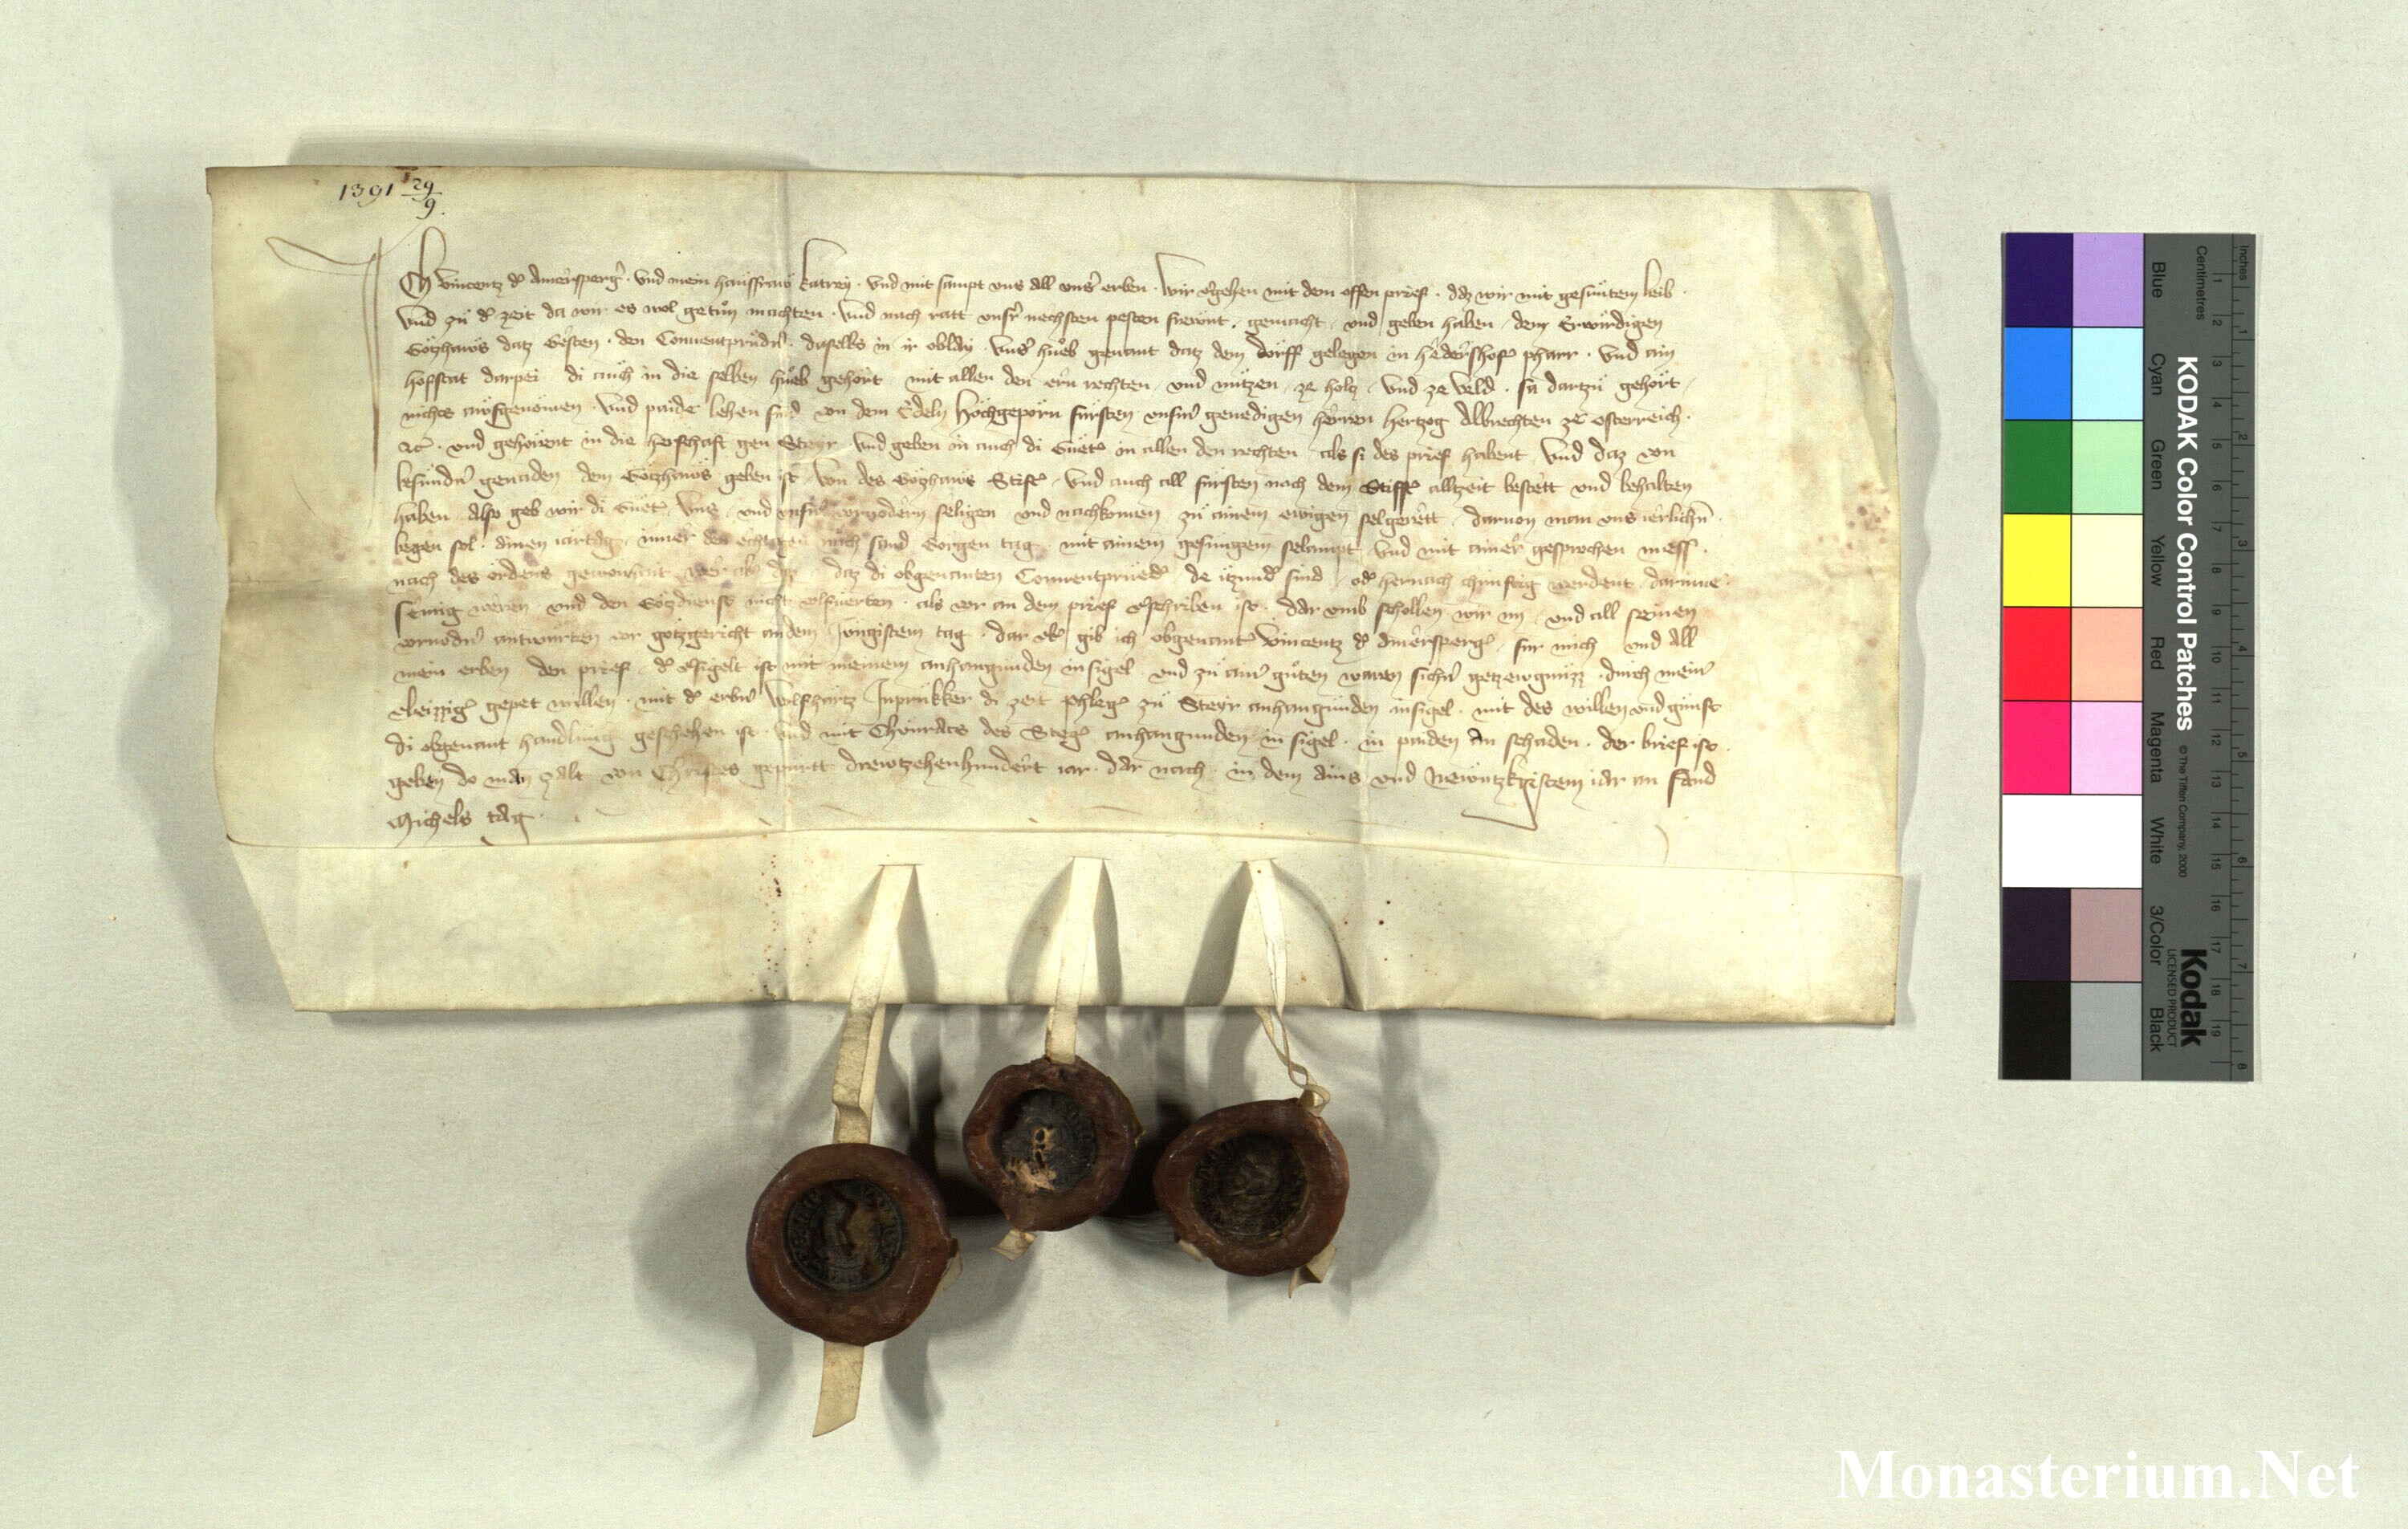 1391 29/9.
Ich Vincentz der Amersperger · Und mein hausfraw Katrey · Und mit sampt uns all unser erben · Wir vergehen mit dem offen prief · daz wir mit gesuntem leib ·
Und zu der zeit da wir es wol getun machten · Und nach ratt unsrer nechsten pesten frewnt · gemacht · und geben haben · dem Erwurdigen
Gotzhaws datz Gersten · den Conventprudern · daselbs in ir oblay · Unser hueb genant datz dem dorff gelegen in pharr · Und ain
hofstat darpei di auch in die selben hueb gehort mit allen den ern rechten und nutzen · ze holtz · Und ze Veld · sa dartzu gehort ·
nichts awsgenomen · Und paide lehen sind von dem Edeln Hochgeporn fursten unserm genedigen herren Hertzog Albrechten ze osterreich ·
etc · und gehorent in die herschaft gen Steyr · Und geben in auch di Guter in allen den rechten als si des prief habent Und daz von
besundern genaden dem Gotzhaws geben ist Von des Gotzhaws Stifter · Und auch all fursten nach dem Stiffter alltzeit bestett und behalten
haben · Also geb wir di Guter Uns · und unsern vorvodern seligen und nachkomen zu ainem ewigen selgerett · darvon man uns ierlichen ·
begen sol · ainen iartag · inner den echtagen nach sand Gorgen tag mit ainem gesungem selampt Und mit ainer gesprochen mess ·
nach des ordens gewonhait wer aber daz daz di obgenanten Conventprueder de itzund sind · oder hernach chunftig werdent darinne ·
semig weren und den Gotzdienst nicht volfuerten · als vor an dem prief verschriben ist · dar umb schollen wir in · und all seinen
vorvodern antwurten vor gotzgericht an dem Jungistem tag · dar uber gib ich obgenanter Vincentz der Amersperger · fur mich und All
mein erben den prief · der versigelt ist mit meinem anhangunden insigel und zu ainer guten waren sichern getzewgnuzz · durch meiner
vleizziger gepet willen · mit der erbern Wolfhartz Inprukker di zeit phleger zu Steyr anhangunden insigel · mit des willen und gunst
di obgenant handlung geschehen ist · Und mit Chunrats des Steger anhangunden in sigel · in paiden An schaden · der brief ist
geben do man zalt von Christes gepurtt drewtzehenhundert iar · dar nach · in dem ains und Newntzkgistem iar an sand
Michels tag ·
KODAK Color Control Patches © The Tiffen Company, 2000
Kodak
LICENSED PRODUCT
Blue Cyan Green Yellow Red Magenta White 3/Color Black
Inches 1 2 3 4 5 6 7 8
Centimetres 1 2 3 4 5 6 7 8 9 10 11 12 13 14 15 16 17 18 19
Monasterium.Net